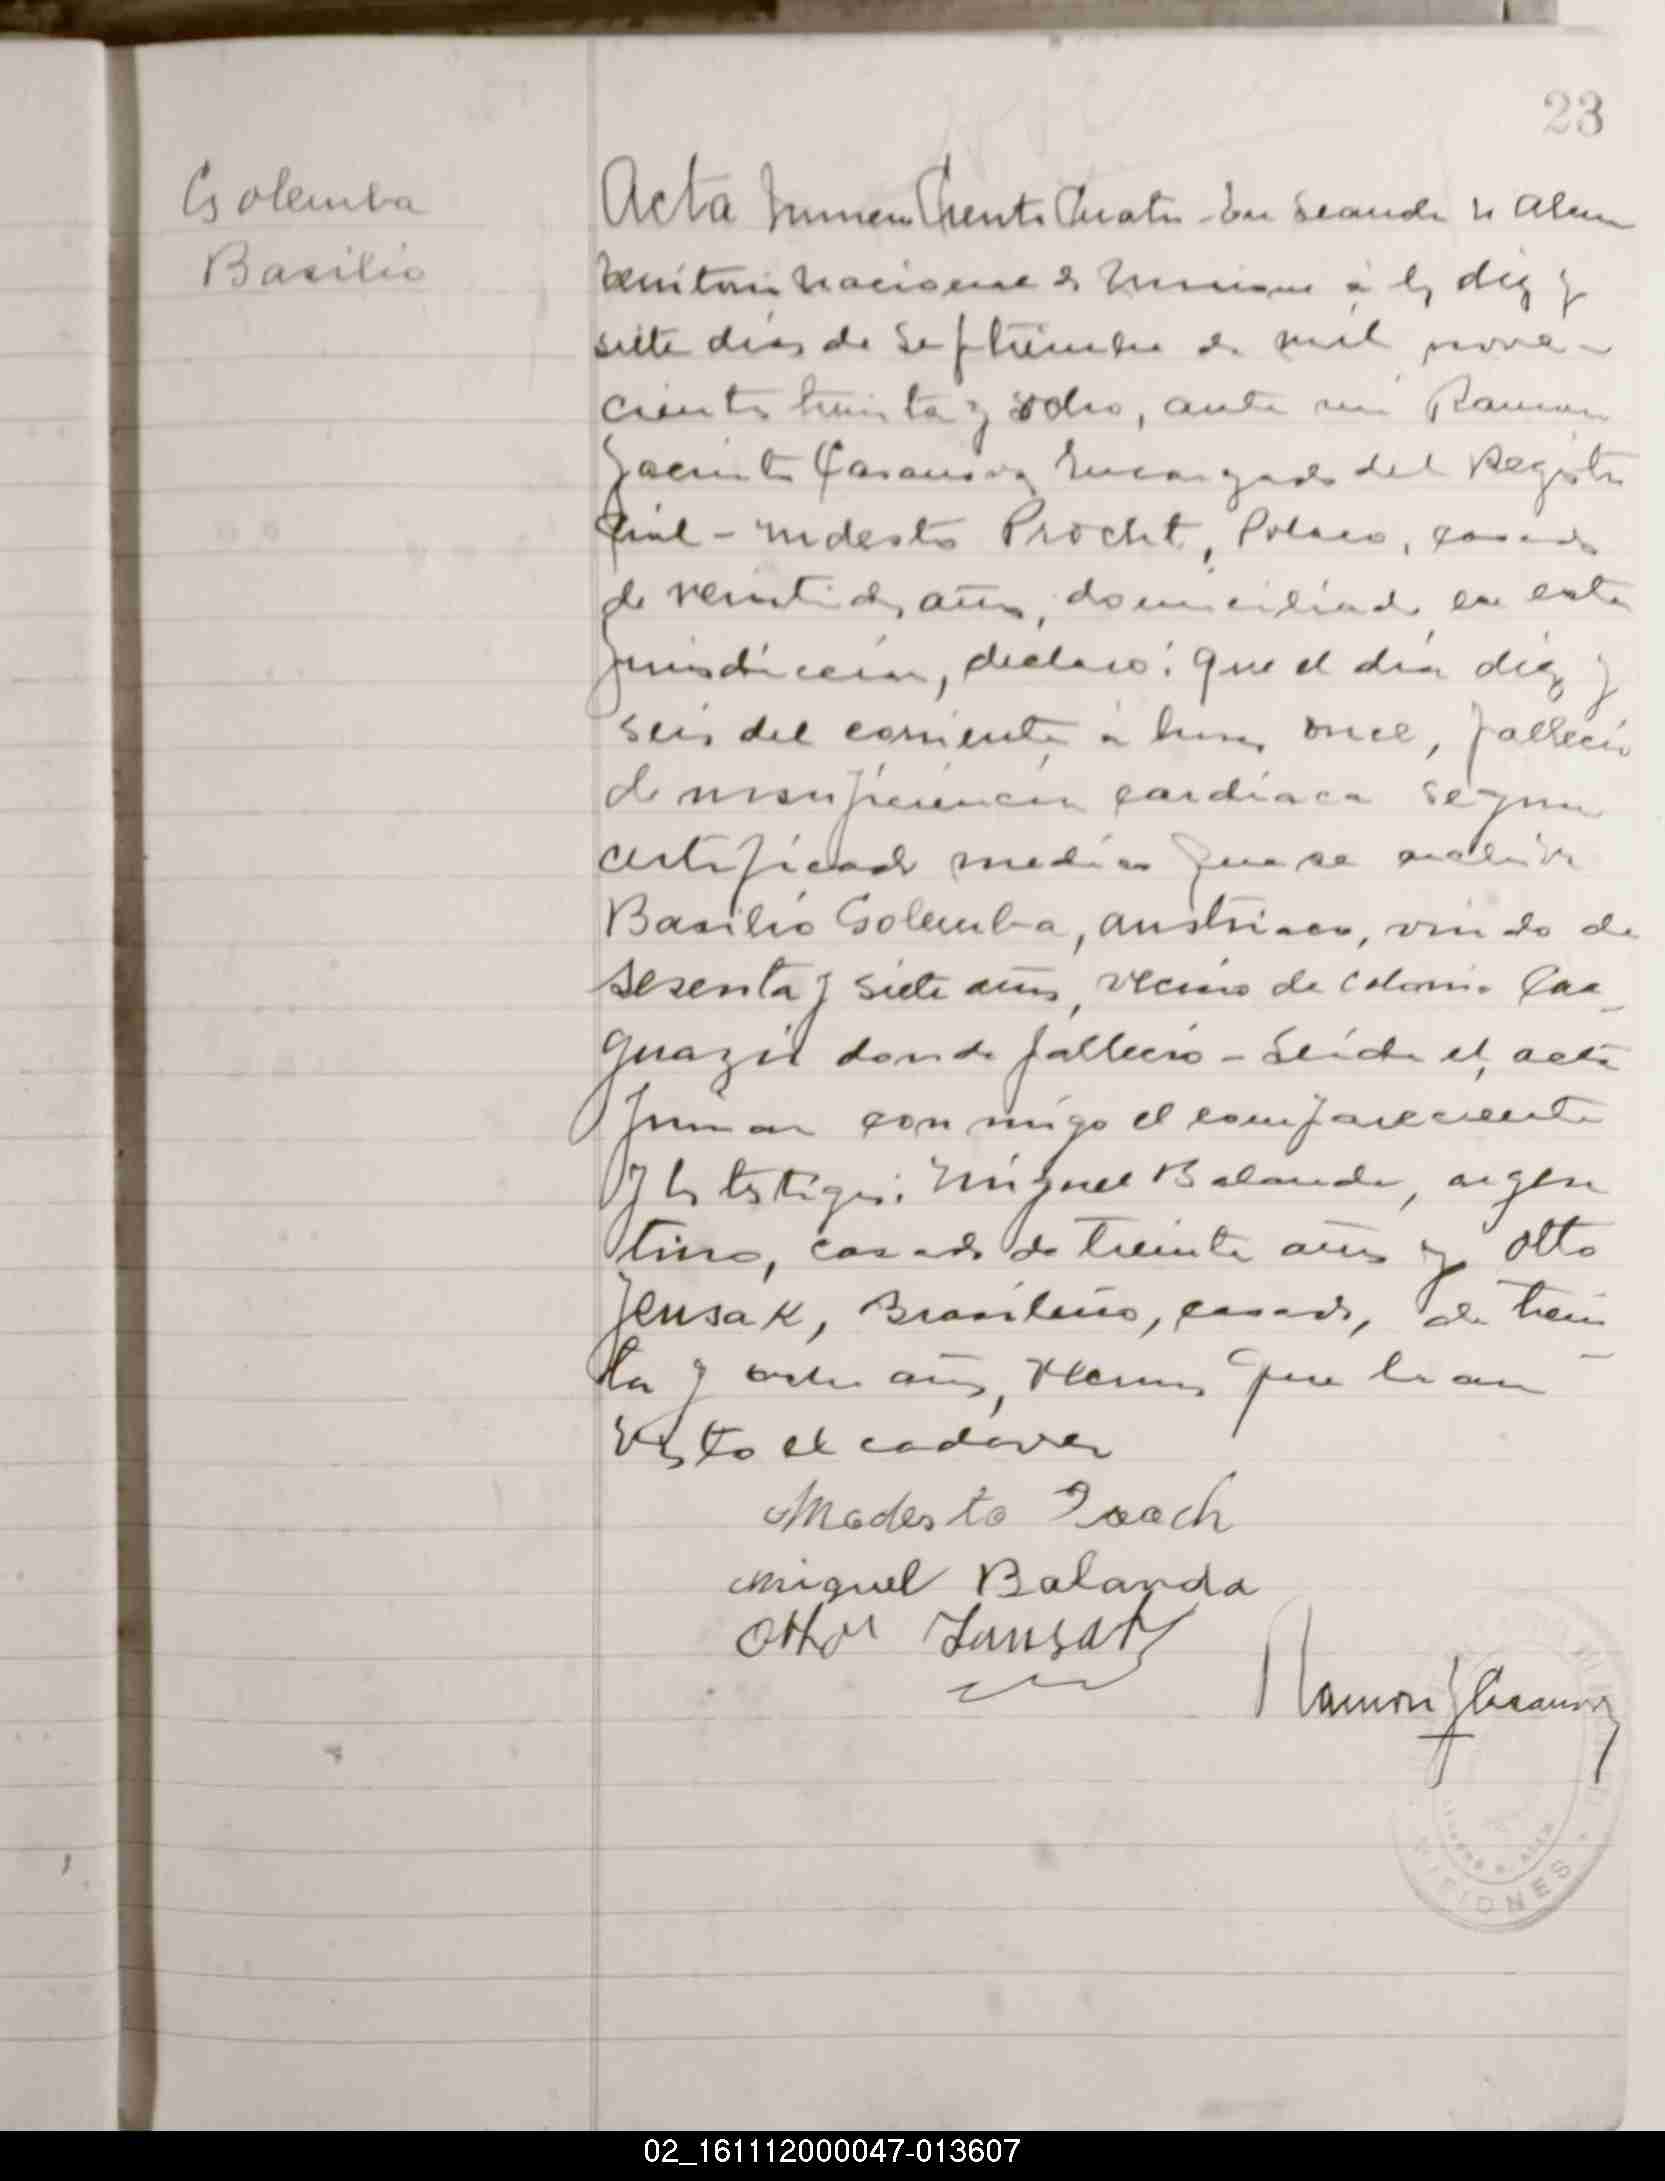 23
Golemba
Basilio
Acta Numero Ciento Cuatro - En Leandro N Alem
Territorio Nacional de Misiones a los diez y
siete dias de Septiembre de mil nove-
cientos treinta y ocho, ante mi Ramon
Jacinto Casanova Encargado del Registro
Civil - Modesto Procht, Polaco, casado
de veintidos años, domiciliado en esta
Jurisdiccion, declaró: Que el dia diez y
seis del corriente a horas once, fallecio
de insuficiencia cardiaca segun
certificado medico que se archiva
Basilio Golemba, austriaco, viudo de
sesenta y siete años, vecino de Colonia Caa-
guazú donde fallecio - Leida el acta
firman conmigo el compareciente
y los testigos: Miguel Balanda, argen
tino, casado de treinta años y Otto
Jensak, Brasileño, casado, de trein
ta y ocho años, vecinos que han
visto el cadaver
Modesto
Miguel Balanda
Otto
Ramon J Casanova
MISIONES
02_161112000047-013607